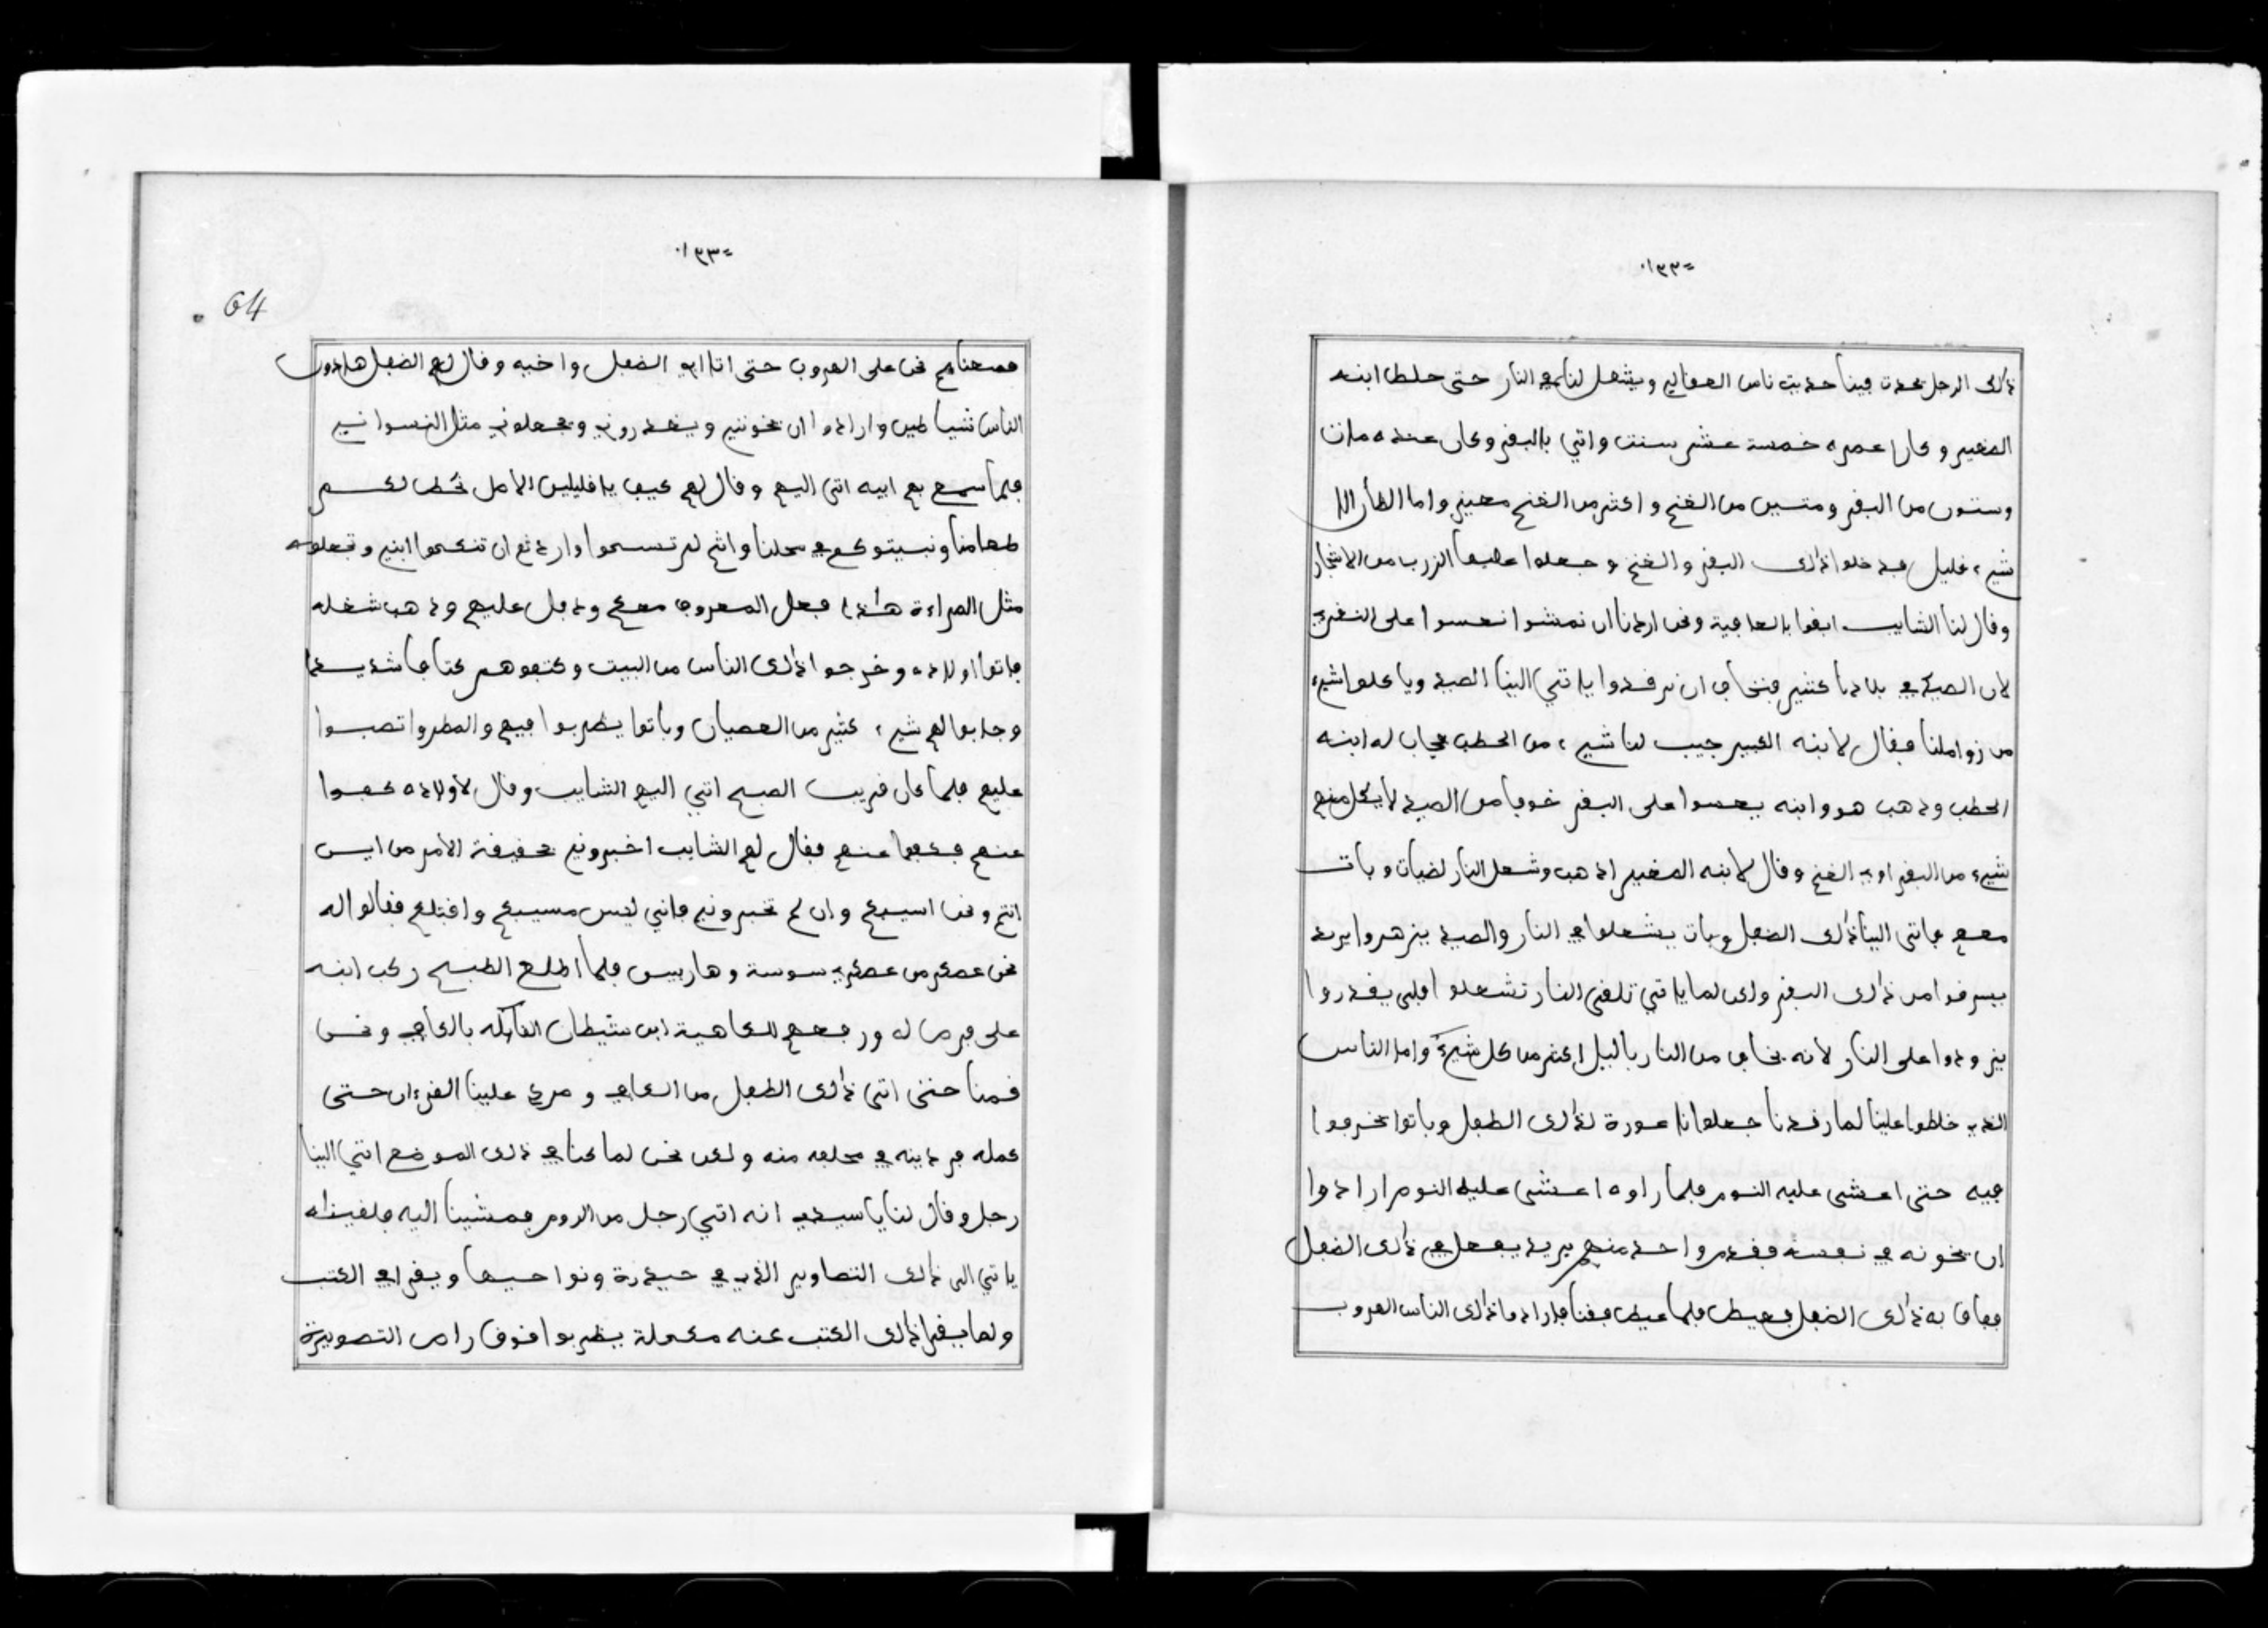 =١٢٢٠
ذالك الرجل يحدث فينا حديث ناس العقالي ويشعل لنا في النار حتى خلط ابنه
الصغير وكان عمره خمسة عشر سنت واتي بالبقر وكان عنده مات
وستون من البقر ومتسين من الغنم واكثر من الغنم معيز واما الظأن الا
شيء قليل فدخلوا ذالك البقر والغنم وجعلوا عليها الزرب من الاشجار
وقال لنا الشايب ابقوا بالعافية ونحن اردنا ان نمشوا نعسوا على
لان الصيد في بلادنا كثير فنخاف ان نرقدوا ياتي الينا الصيد وياكلوا شيء
من زواملنا فقال لابنه الكبير جيب لنا شيء من الحطب فجاب له ابنه
الحطب وذهب هو وابنه يعسوا على البقر خوفا من الصيد لا يكل منهم
شيء من البقر اوي الغنم وقال لابنه الصغير اذهب وشعل النار لضياف وبات
معهم فاتى الينا ذالك الضفل وبات يشعلوا في النار والصيد ينزهروا يريد
يسرقوا من ذالك البقر ولكن لما ياتي تلقى النار تشعلوا فلم يقدروا
يزودوا على النار لانه يخاف من النار باليل اكثر من كل شيء واما الناس
الذي خلطوا علينا لما رقدنا جعلوا عورة لذالك الطفل وباتوا يخرفوا
فيه حتى اعشى عليه النوم فلما راوه اعشى عليه النوم ارادوا
ان يخونه في نفسه فقدم واحد منهم يريد يفعل في ذالك الضفل
ففاق به ذالك الضفل فعيط فلما عيط فقنا فارادوا ذالك الناس الهروب
=١٢٣٠
64
فمنعناهم نحن على الهروب حتى اتا ابي الضفل واخيه وقال لهم الضفل هاذون
الناس شياطين وارادوا ان يخونني ويغدروني ويجعلوني مثل النسواني
فلما سمع بهم ابيه اتى اليهم وقال لهم كيف يا قليلين الامل نحط لكم
طعامنا ونبيتوكم في محلنا وانتم لم تستحوا واردتم ان تنكحوا ابني وتجعلوه
مثل المراءة هاذا فعل المعروف معكم ودبل عليهم وذهب شغله
فاتوا اولاده وخرجوا ذالك الناس من البيت وكتفوهم كتافا شديدا
وجابوا لهم شيء كثير من العصيان وباتوا يظربوا فيهم والمطر واتصبوا
عليهم فلما كان قريب الصبح اتي اليهم الشايب وقال لاولاده كفوا
عنهم فكفوا عنهم فقال لهم الشايب اخبروني بحقيقة الامر من اين
انتم ونحن اسيبكم وان لم تخبروني فاني ليس مسيبكم واقتلكم فقالوا له
نحن عسكر من عسكر سوسة وهاربين فلما اطلع الصبح ركب ابنه
على فرس له ورفعهم للكاهية ابن شيطان القابله بالكاف ونحن
قمنا حتى اتى ذالك الطفل من الكاف و علينا القرءان حتى
كمله في دينه في محلقه منه ولكن نحن لما كنا في ذالك الموضع اتي الينا
رجل وقال لنا يا سيدي انه اتي رجل من الروم فمشينا اليه فلقيناه
ياتي الى ذالك التصاوير الذي في حيدرة ونواحيها ويقرا في الكتب
ولما يقرا ذالك الكتب عنه مكملة يظربوا فوق راس التصويرة